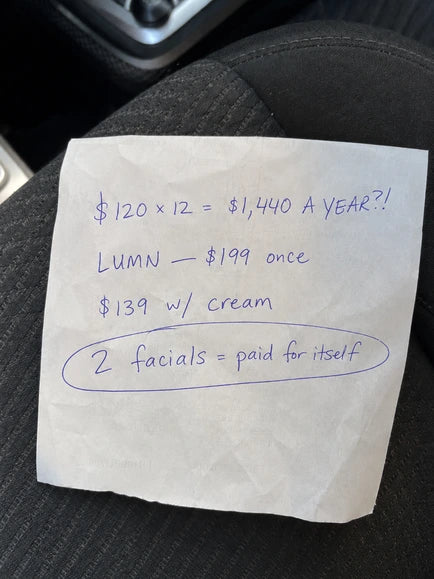 $120 × 12 = $1,440 A YEAR?!
LUMN — $199 once
$139 w/ cream
2 facials = paid for itself